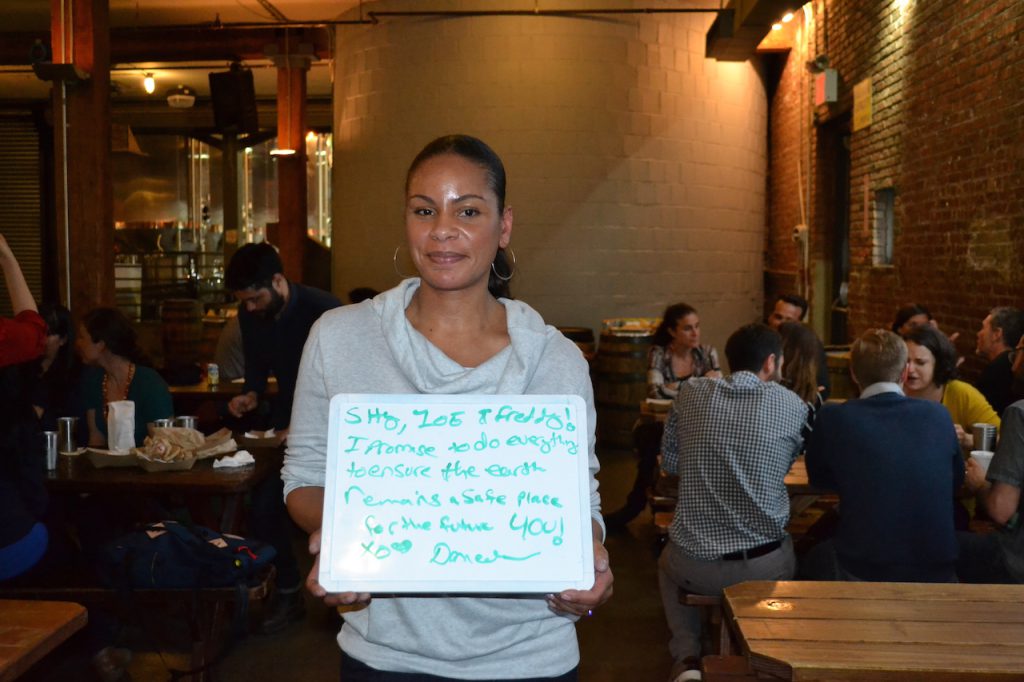 SHY, ZOE & Freddy!
I promise to do everything
to ensure the earth
remains a safe place
for the future YOU!
XO